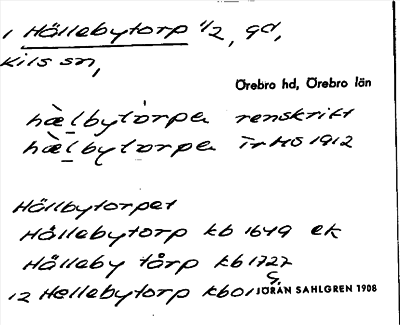 1 Hållebytorp 1/2, gd,
Kils sn,
Örebro hd, Örebro län
hæ̀lbytòrpa renskrift
hæ̀lbytorpa TrHS 1912
Hållbytorpet
Hållebytorp kb 1649 ek
Hålleby tårp kb 1727
12 Hellebytorp kb01 JÖRAN SAHLGREN 1908